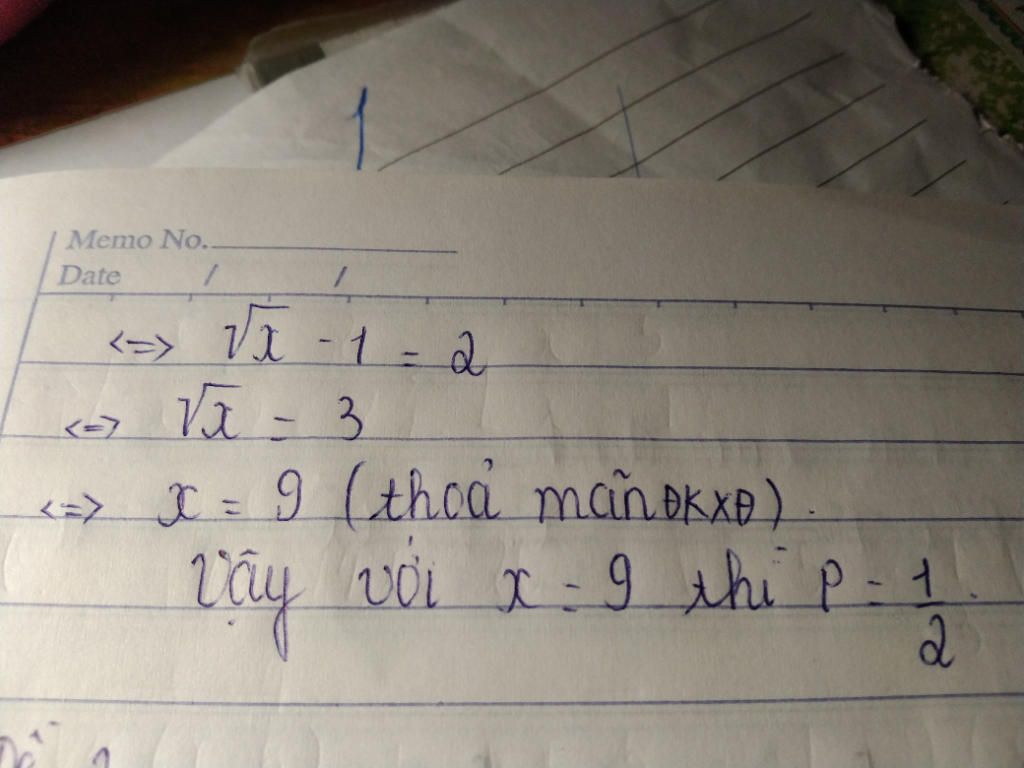 Memo No.
Date / /
<=> √x - 1 = 2
<=> √x = 3
<=> x = 9 (thoả mãn ĐKXĐ).
Vậy với x = 9 thì P = 1/2.